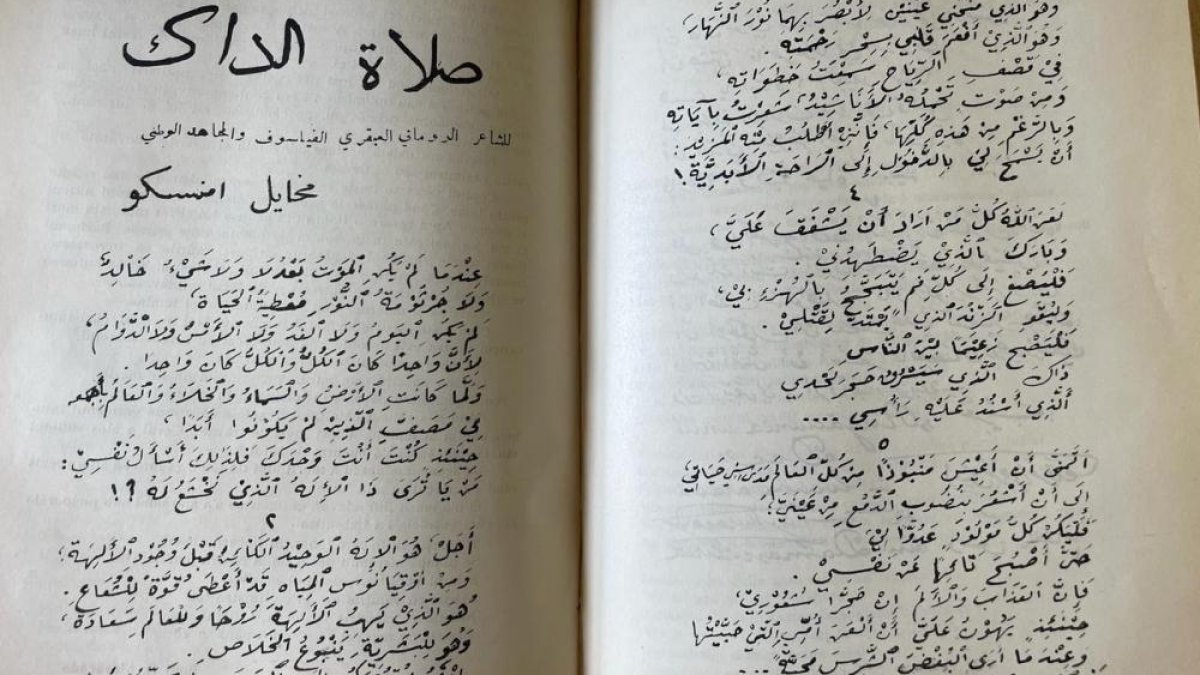 صلاة الداك
للشاعر الروماني العبقري الفيلسوف والمجاهد الوطني
مخايل امنسكو
عِنْدَمَا لَمْ يَكُنِ الْمَوْتُ بَعْدُ لَا وَلَا شَيْءٌ خَالِدٌ
وَلَا جُرْثُومَةُ النُّورِ مُعْطِيَةُ الْحَيَاةِ،
لَمْ يَكُنِ الْيَوْمُ وَلَا الْغَدُ وَلَا الْأَمْسُ وَلَا الدَّوَامُ،
لِأَنَّ وَاحِدًا كَانَ الْكُلُّ وَالْكُلُّ كَانَ وَاحِدًا.
وَلَمَّا كَانَتِ الْأَرْضُ وَالسَّمَاءُ وَالْخَلَاءُ وَالْعَالَمُ
فِي مَصَفِّ الَّذِينَ لَمْ يَكُونُوا أَبَدًا
حِينَئِذٍ كُنْتَ أَنْتَ وَحْدَكَ فَلِذَلِكَ أَسْأَلُ نَفْسِي:
مَنْ يَا تُرَى ذَا الْإِلَهُ الَّذِي نَخْشَعُ لَهُ ؟!
٢
أَجَلْ هُوَ الْإِلَهُ الْوَحِيدُ الْكَائِنُ قَبْلَ وُجُودِ الْآلِهَةِ،
وَمِنْ أُوقِيَانُوسِ الْمِيَاهِ قَدْ أَعْطَى قُوَّةً لِلشُّعَاعِ.
هُوَ الَّذِي يَهَبُ الْآلِهَةَ رُوحًا وَلِلْعَالَمِ سَعَادَةً،
وَهُوَ لِلْبَشَرِيَّةِ يَنْبُوعُ الْخَلَاصِ.
وَهُوَ الَّذِي مَنَحَنِي عَيْنَيْنِ لِأُبْصِرَ بِهِمَا نُورَ النَّهَارِ،
وَهُوَ الَّذِي أَفْعَمَ قَلْبِي بِسِحْرِ رَحْمَتِهِ.
فِي قَصْفِ الرِّيَاحِ سَمِعْتُ خَطَوَاتِهِ،
وَمِنْ صَوْتٍ تَحْمِلُهُ الْأَنَاشِيدُ شَعَرْتُ بِآيَاتِهِ
وَبِالرَّغْمِ مِنْ هَذِهِ كُلِّهَا، فَإِنَّنِي أَطْلُبُ مِنْهُ الْمَزِيدَ:
أَنْ يَسْمَحَ لِي بِالدُّخُولِ إِلَى الرَّاحَةِ الْأَبَدِيَّةِ!
٤
لَعَنَ اللهُ كُلَّ مَنْ أَرَادَ أَنْ يَشْفَقَ عَلَيَّ،
وَبَارَكَ الَّذِي يَضْطَهِدُنِي.
فَلْيُصْغِ إِلَى كُلِّ فَمٍ يَتَبَجَّحُ بِالْهُزْءِ بِي،
وَلْيَقْوَ الزَّنْدُ الَّذِي يَمْتَدُّ لِقَتْلِي.
فَلْيُصْبِحْ زَعِيمًا بَيْنَ النَّاسِ
ذَاكَ الَّذِي سَيَسْرِقُ حَجَرَ لَحْدِي
الَّذِي أَسْنُدُ عَلَيْهِ رَأْسِي ....
٥
أَتَمَنَّى أَنْ أَعِيشَ مَنْبُوذًا مِنْ كُلِّ الْعَالَمِ مَدَى سِنِي حَيَاتِي
إِلَى أَنْ أَشْعُرَ بِنُضُوبِ الدَّمْعِ مِنْ عَيْنَيَّ؛
فَلْيَكُنْ كُلُّ مَوْلُودٍ عَدُوًّا لِي
حَتَّى أُصْبِحَ تَائِهًا عَنْ نَفْسِي.
فَإِنَّ الْعَذَابَ وَالْأَلَمَ إِنْ حَجَّرَا شُعُورِي،
حِينَئِذٍ يَهُونُ عَلَيَّ أَنْ أَلْعَنَ أُمِّيَ الَّتِي حَبَّيْتُهَا
وَعِنْدَمَا أَرَى الْبُغْضَ الشَّرِسَ مَحَبَّةً ....